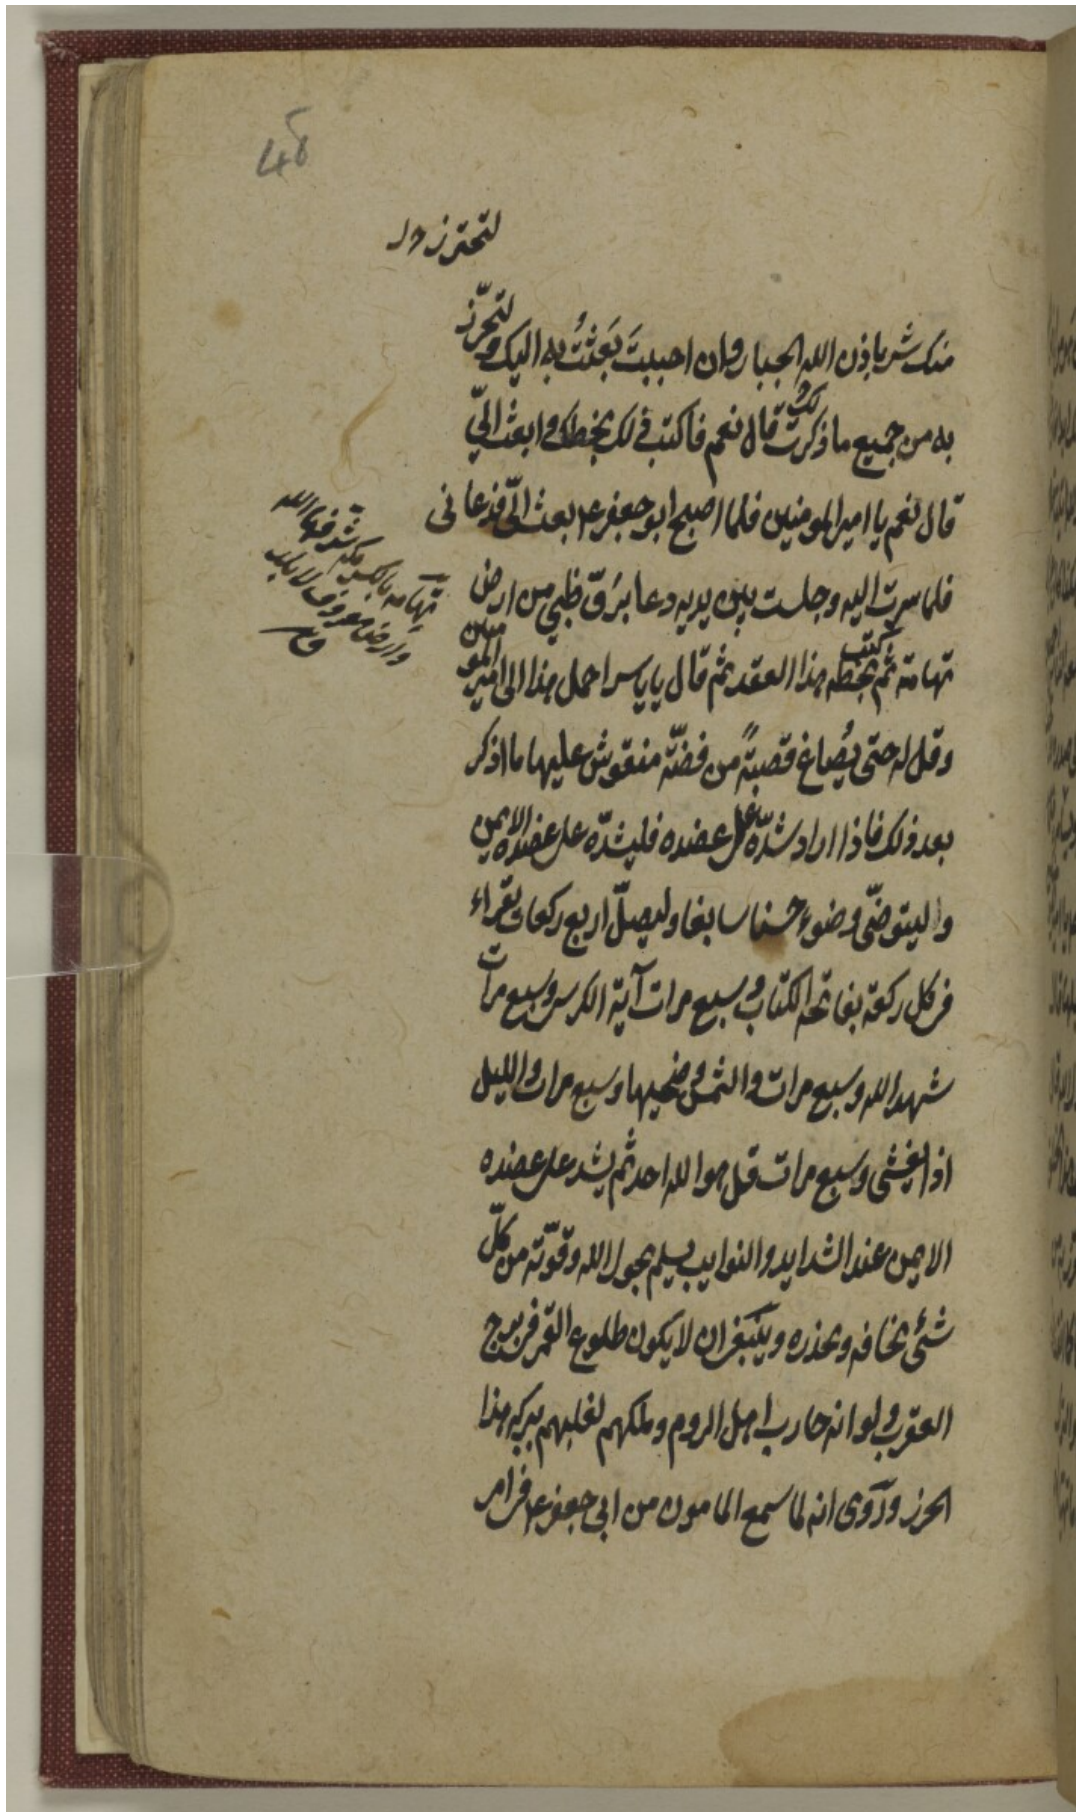 48
لتحترز
منك شر باذن الله الجبار وان احببت بَعَثْتُ به اليك ولتحرّز
به من جميع ما ذكرتُ لك قال نعم فاكتب ذلك بخطك وابعث اليّ
قال نعم يا امير المومنين فلما اصبح ابو جعفر ع بعث الىّ فدعانى
فلما سرت اليه وجلست بين يديه دعا برَقّ ظبي من ارض
تهامة ثم كتب بخطه هذا العقد ثم قال يا ياسر احمل هذا الى امير المومنين
وقل له حتى يُصاغ قصبةً من فضّة منقوش عليها ما اذكر
بعد ذلك فاذا اراد شدّه على عضده فليشدّه على عضده الايمن
واليتوضّى وضوء حسنا سابغا وليصلّ اربع ركعات يقراء
فى كل ركعة بفاتحه الكتاب وسبع مرات آية الكرسى وسبع مرات
شهد الله وسبع مرات والشمس وضحيها وسبع مرات والليل
اذا يغشى وسبع مرات قل هو الله احد ثم يشد على عضده
الايمن عند الشدايد والنوايب يسلم بحول الله وقوّته من كلّ
شئى يخافه ويحذره وينبغى ان لا يكون طلوع القمر فى برج
العقرب ولو انه حارب اهل الروم وملكهم لغلبهم ببركه هذا
الحرز ورَوى انه لما سمع المامون من ابى جعفر ع فى امر
تهامه بالكسر مكه شرفها الله
وارض معروف لا بلد